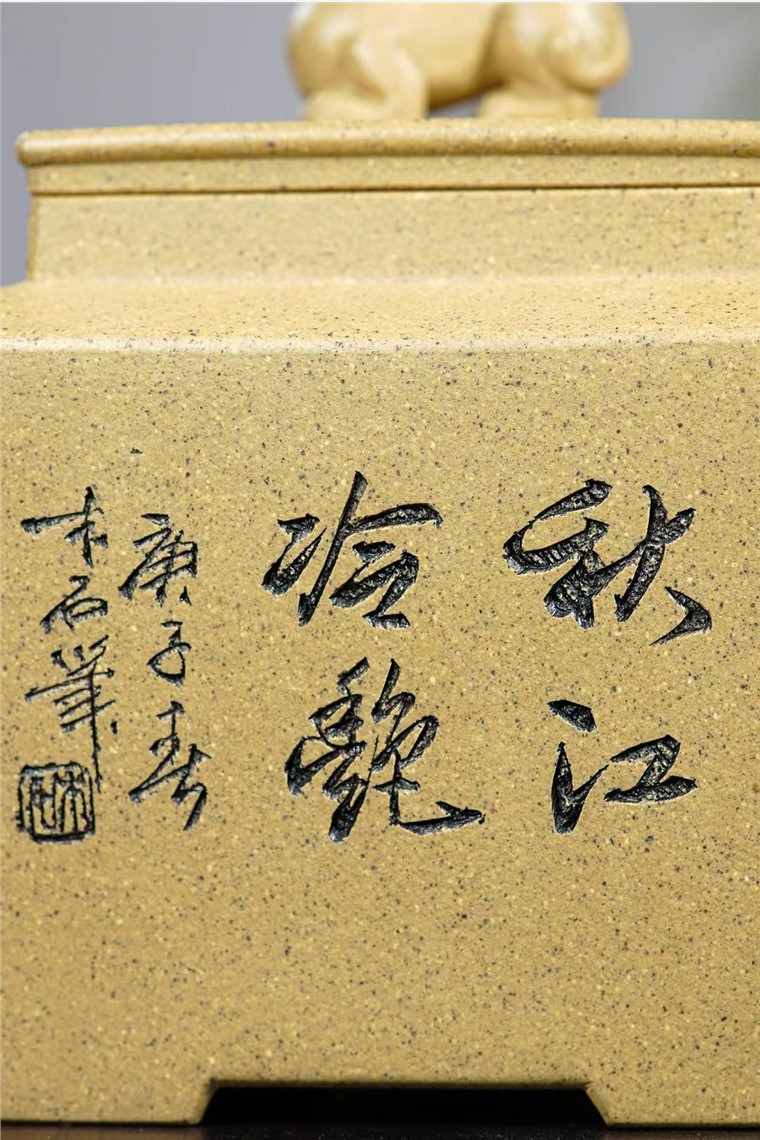 秋江
冷艳
庚子春
木石筆